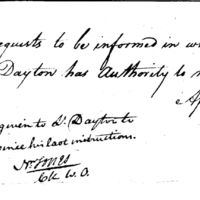 equests to be informed in w
Dayton has authority to
Ap
given to Lt. Dayton to
since his last instructions.
Wm Jones
Clk W.O.